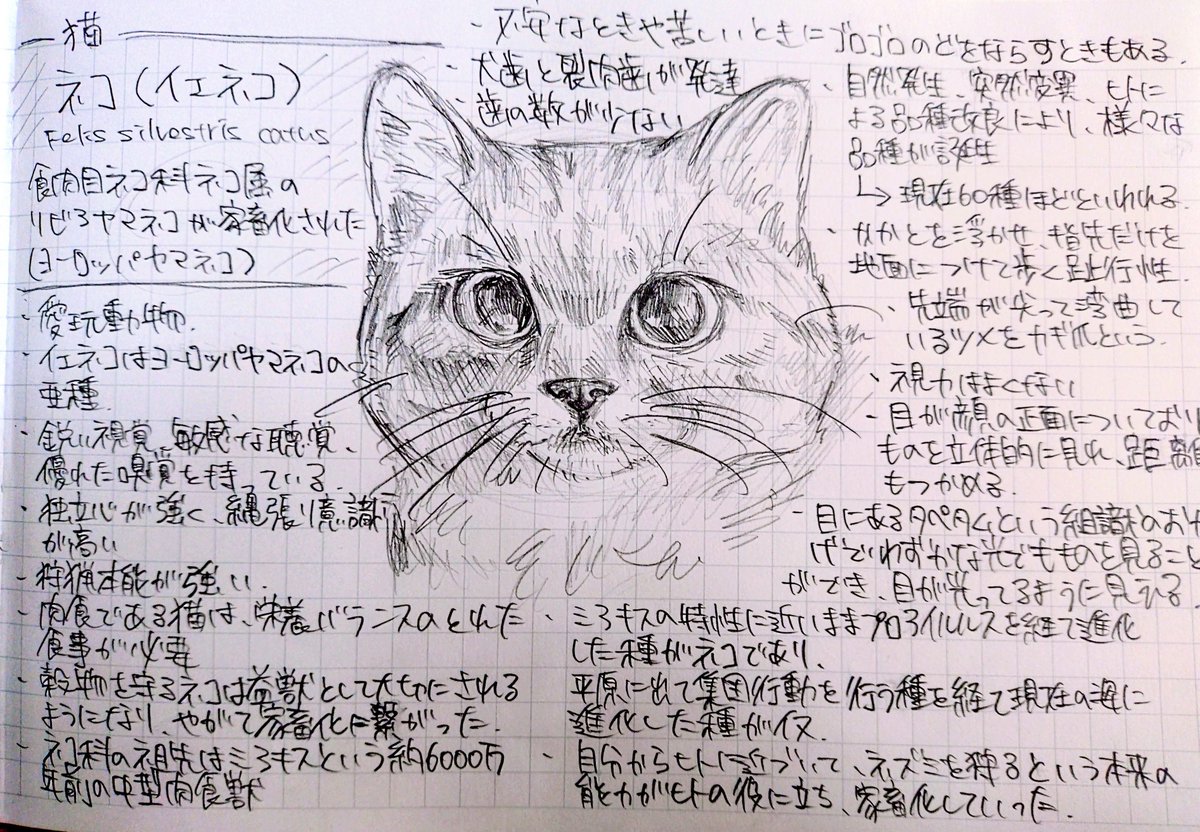 猫
ネコ(イエネコ)
Felis silvestris catus
食肉目ネコ科ネコ属の
リビアヤマネコが家畜化された
(ヨーロッパヤマネコ)
・愛玩動物.
・イエネコはヨーロッパヤマネコの
亜種.
・鋭い視覚、敏感な聴覚、
優れた嗅覚を持っている.
・独立心が強く、縄張り意識
が高い
・狩猟本能が強い.
・肉食である猫は、栄養バランスのとれた
食事が必要
・穀物を守るネコは益獣として大切にされる
ようになり、やがて家畜化に繋がった.
・ネコ科の祖先はミアキスという約6000万
年前の中型肉食獣
・不安なときや苦しいときにゴロゴロのどをならすときもある.
・犬歯と裂肉歯が発達
・歯の数が少ない
・自然発生、突然変異、ヒトに
よる品種改良により、様々な
品種が誕生
↳現在60種ほどといわれる.
・かかとを浮かせ、指先だけを
地面につけて歩く趾行性.
・先端が尖って湾曲して
いるツメをカギ爪という.
・視力はよくない
・目が顔の正面についており
ものを立体的に見れ、距離
もつかめる.
・目にあるタペタムという組識のおか
げでわずかな光でもものを見ること
ができ、目が光ってるように見える
・ミアキスの特性に近いままプロアイルルスを経て進化
した種がネコであり、
平原に出て集団行動を行う種を経て現在の姿に
進化した種がイヌ.
・自分からヒトに近づいて、ネズミを狩るという本来の
能力がヒトの役に立ち、家畜化していった.